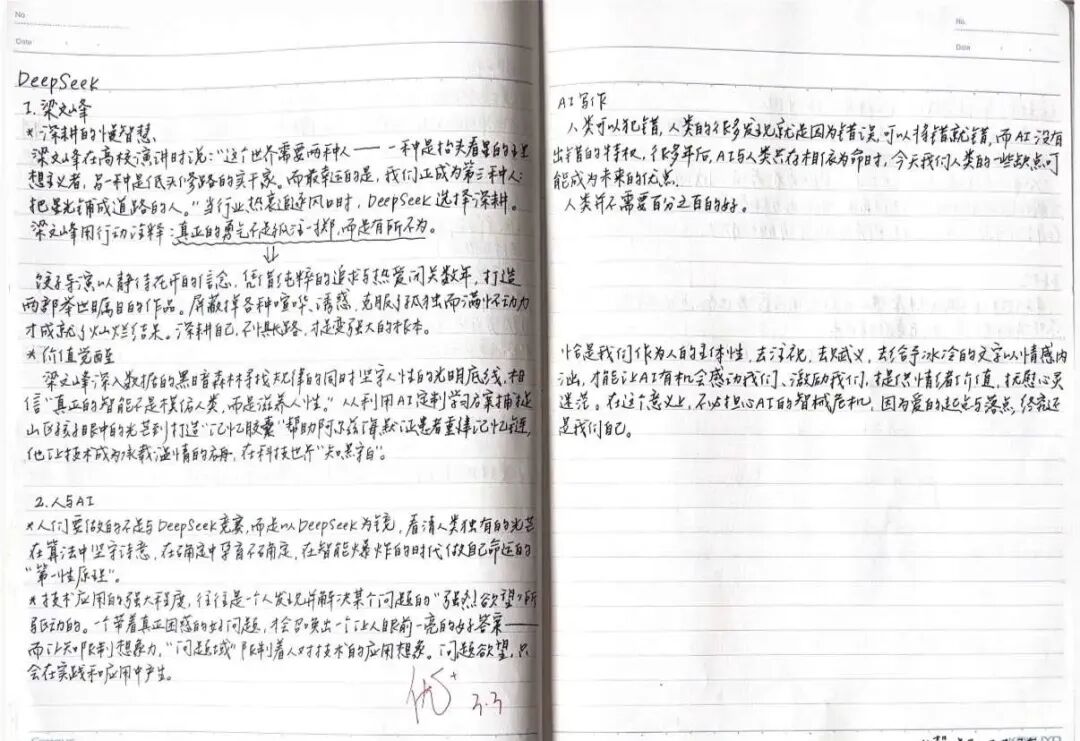 No
Date
DeepSeek
1.梁文峰
*深耕的慢智慧
梁文峰在高校演讲时说:“这个世界需要两种人——一种是抬头看星的理
想主义者,另一种是低头修路的实干家。而最幸运的是,我们正成为第三种人:
把星光铺成道路的人。”当行业热衷追逐风口时,DeepSeek选择深耕。
梁文峰用行动诠释:真正的勇气不是孤注一掷,而是有所不为。
⇓
饺子导演以静待花开的信念,凭借纯粹的追求与热爱闭关数年,打造
两部举世瞩目的作品。屏蔽掉各种喧哗、诱惑,克服了孤独而满怀动力
才成就了灿烂结果。深耕自己,不惧长路,才是变强大的根本。
*价值觉醒
梁文峰深入数据的黑暗森林寻找规律的同时坚守人性的光明底线,相
信“真正的智能不是模仿人类,而是滋养人性。”从利用AI定制学习方案捕捉
山区孩子眼中的光芒到打造“记忆胶囊”帮助阿尔兹海默症患者重铸记忆链,
他让技术成为承载温情的方舟,在科技世界“知黑守白”。
2.人与AI
*人们要做的不是与DeepSeek竞赛,而是以DeepSeek为镜,看清人类独有的光芒
在算法中坚守诗意,在确定中孕育不确定,在智能爆炸的时代做自己命运的
“第一性原理”。
*技术应用的强大程度,往往是一个人发现并解决某个问题的“强烈欲望”所
驱动的。一个带着真正困惑的好问题,才会召唤出一个让人眼前一亮的好答案——
而认知限制想象力,“问题域”限制着人对技术的应用想象。问题欲望,只
会在实践和应用中产生。
优+ 3.3
No.
Date
AI写作
人类可以犯错,人类的很多发现就是因为错误,可以将错就错,而AI没有
出错的特权,很多年后,AI与人类共存相依为命时,今天我们人类的一些缺点可
能成为未来的优点。
人类并不需要百分之百的好。
恰是我们作为人的主体性,去注视,去赋义,去给予冰冷的文字以情感内
涵,才能让AI有机会感动我们、激励我们,提供情绪价值,抚慰心灵
迷茫。在这个意义上,不必担心AI的智械危机,因为爱的起点与落点,终究还
是我们自己。